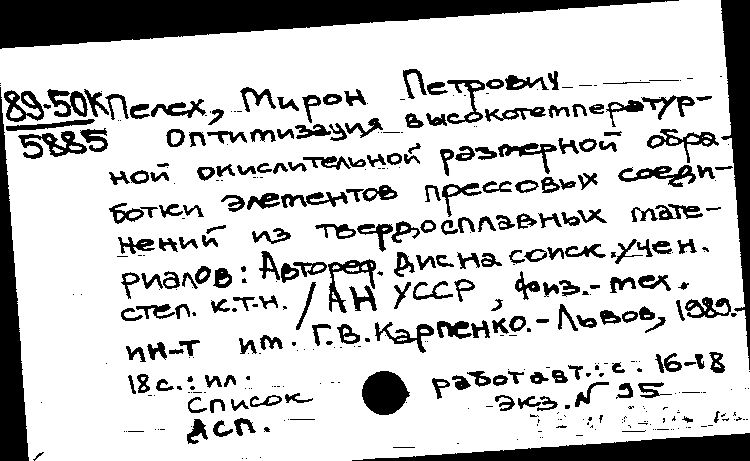 89-50К Пелех, Мирон Петрович
5885 Оптимизация высокотемператур-
ной окислительной размерной обра-
ботки элементов прессовых соеди-
нений из твердосплавных мате-
риалов: Автореф. дис на соиск. учен.
степ. к.т.н. / АН УССР, физ.-мех.
ин-т им. Г.В.Карпенко.-Львов, 1989.-
18 с.: ил.
Список работ авт.: с. 16-18
АСП. экз. N 95